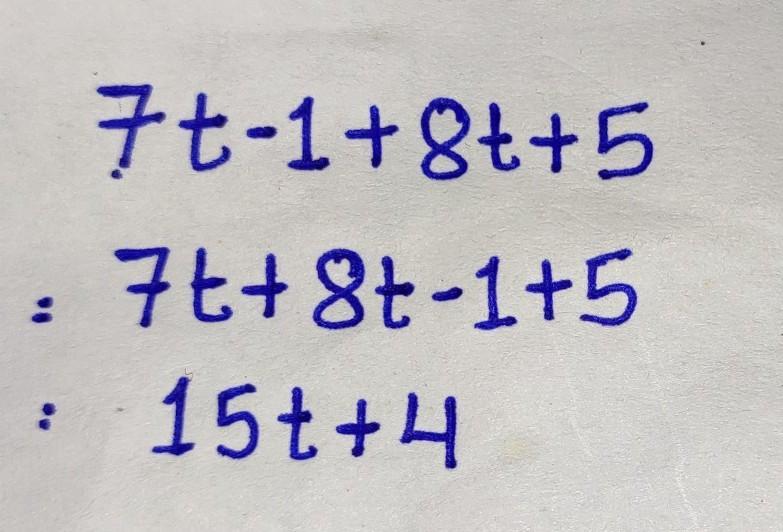 7t-1+8t+5
= 7t+8t-1+5
= 15t+4